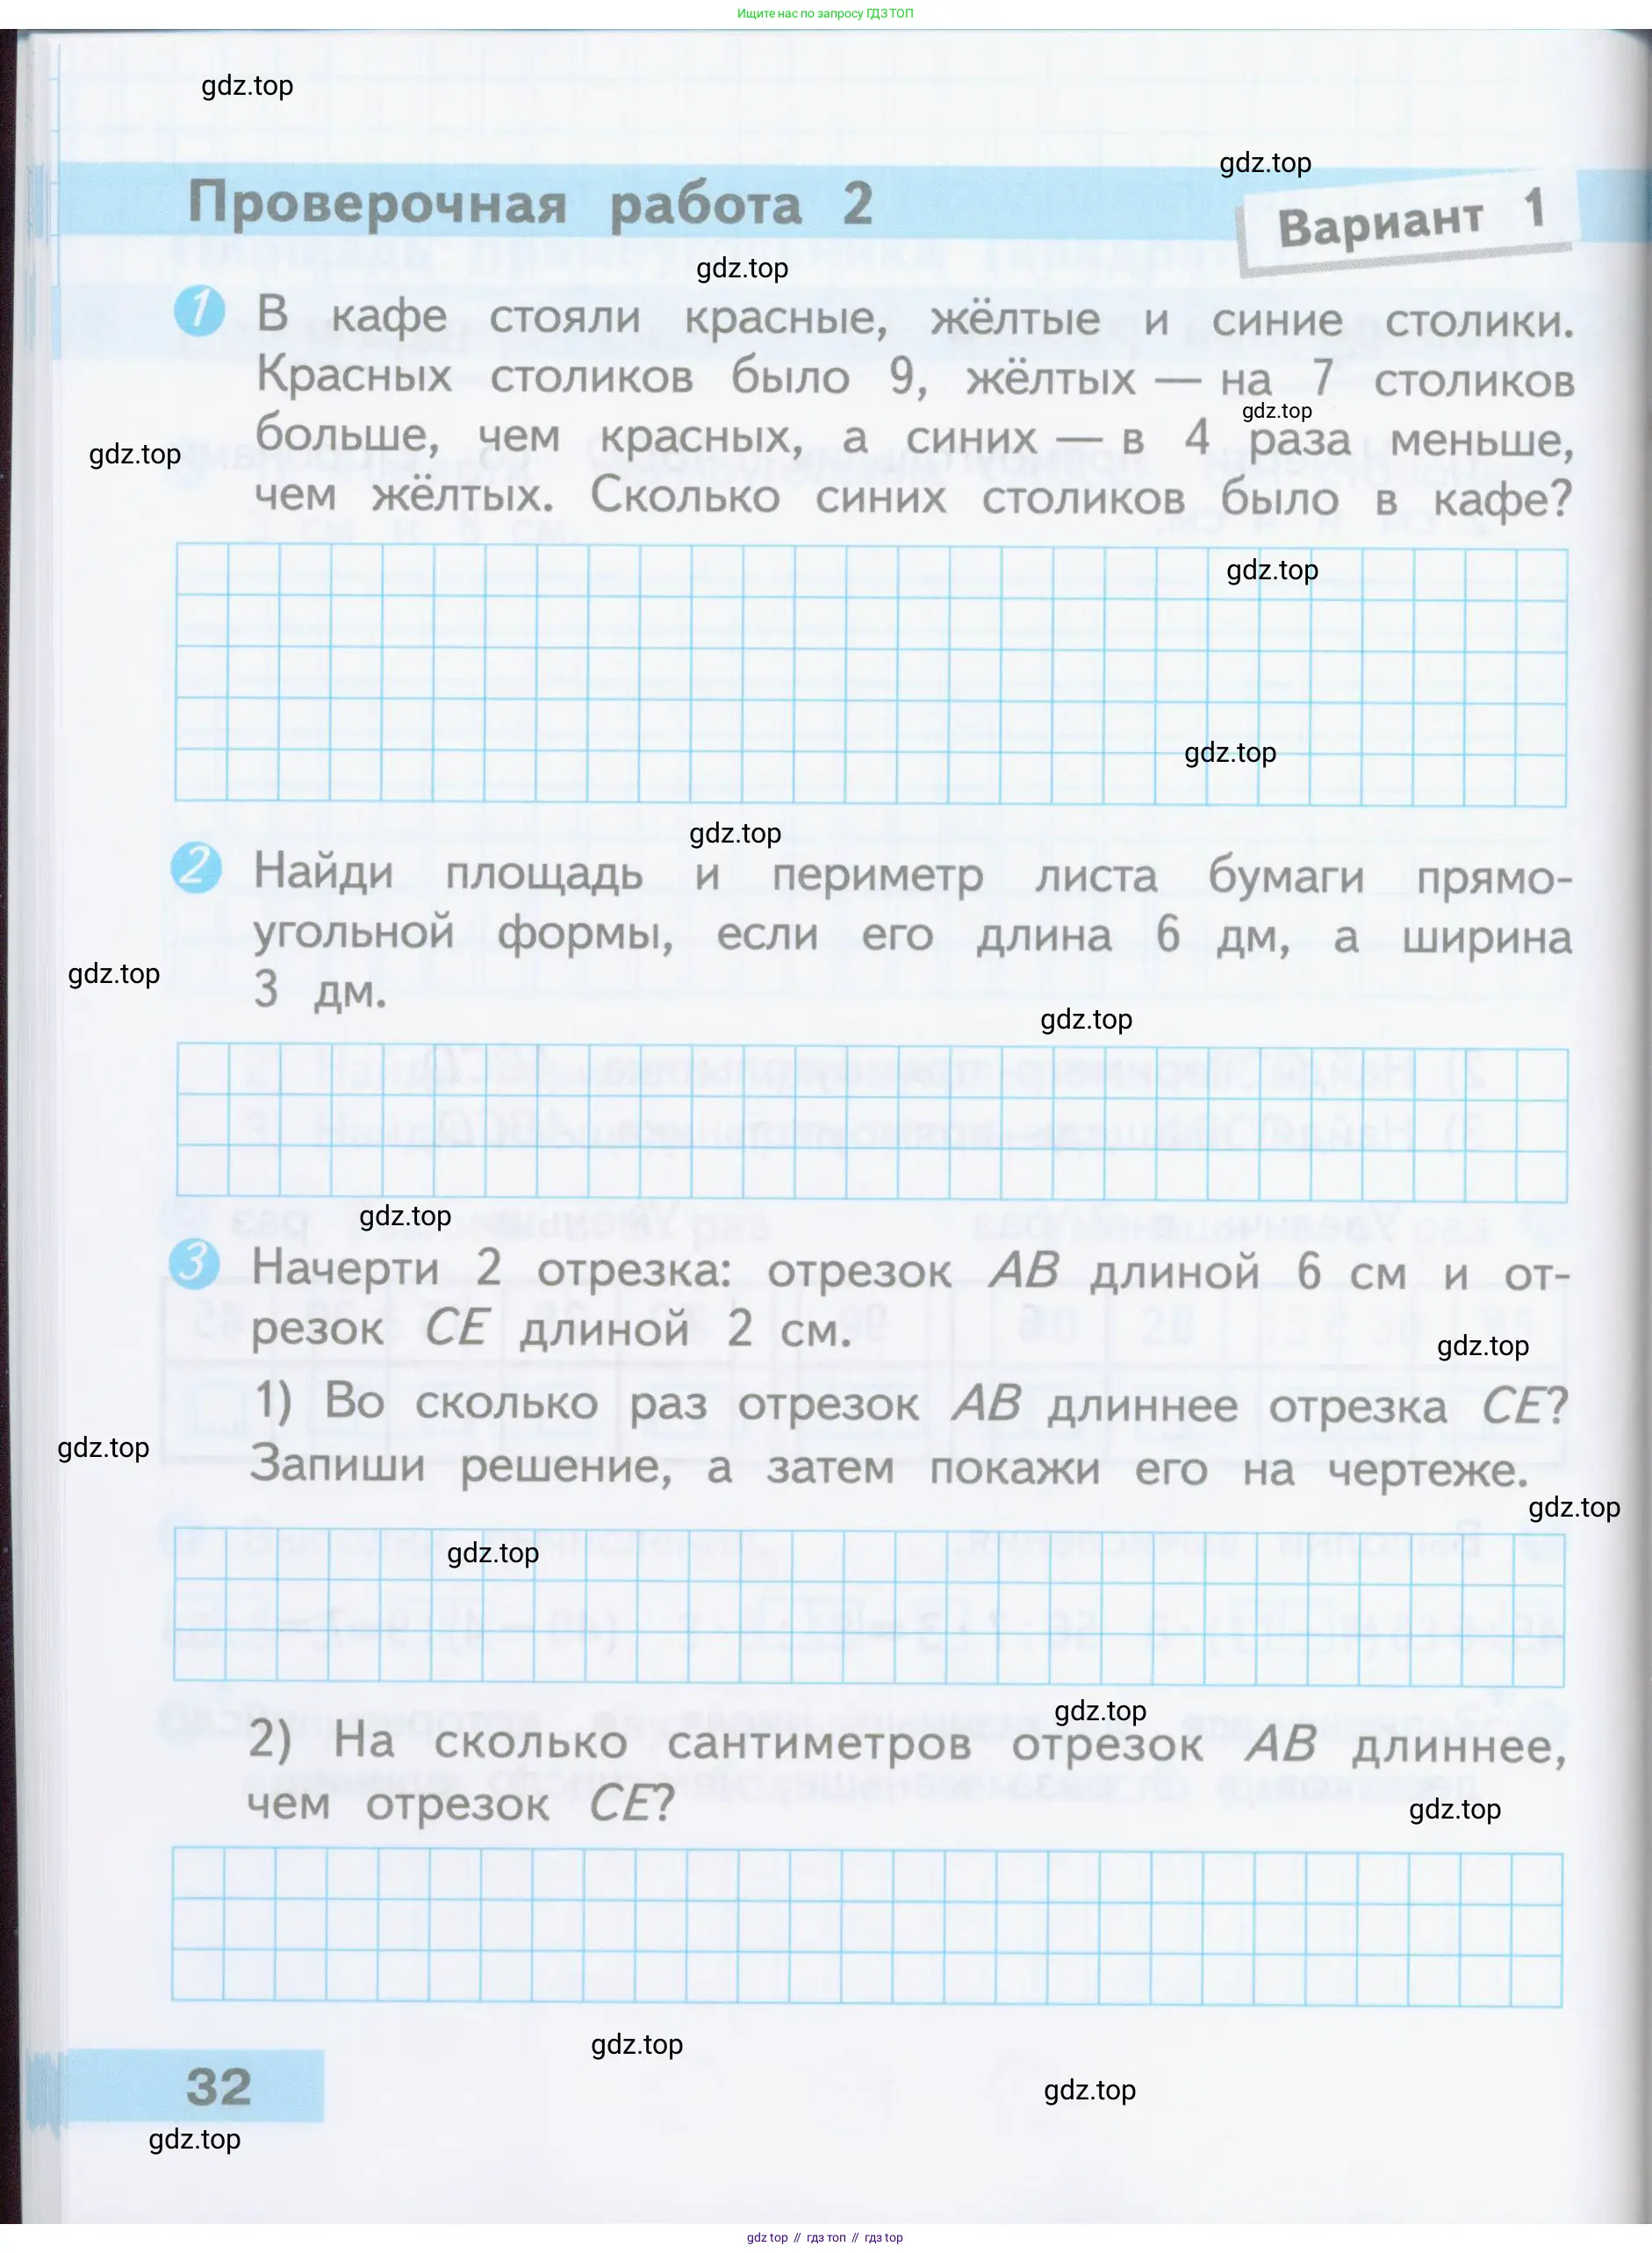 Ищите нас по запросу ГДЗ ТОП
gdz.top
gdz.top
Проверочная работа 2
Вариант 1
gdz.top
1 В кафе стояли красные, жёлтые и синие столики.
Красных столиков было 9, жёлтых — на 7 столиков
gdz.top
больше, чем красных, а синих — в 4 раза меньше,
gdz.top
чем жёлтых. Сколько синих столиков было в кафе?
gdz.top
gdz.top
gdz.top
2 Найди площадь и периметр листа бумаги прямо-
угольной формы, если его длина 6 дм, а ширина
gdz.top
3 дм.
gdz.top
gdz.top
3 Начерти 2 отрезка: отрезок AB длиной 6 см и от-
резок CE длиной 2 см.
gdz.top
1) Во сколько раз отрезок AB длиннее отрезка CE?
gdz.top
Запиши решение, а затем покажи его на чертеже.
gdz.top
gdz.top
gdz.top
2) На сколько сантиметров отрезок AB длиннее,
чем отрезок CE?
gdz.top
gdz.top
32
gdz.top
gdz.top
gdz top // гдз топ // гдз top